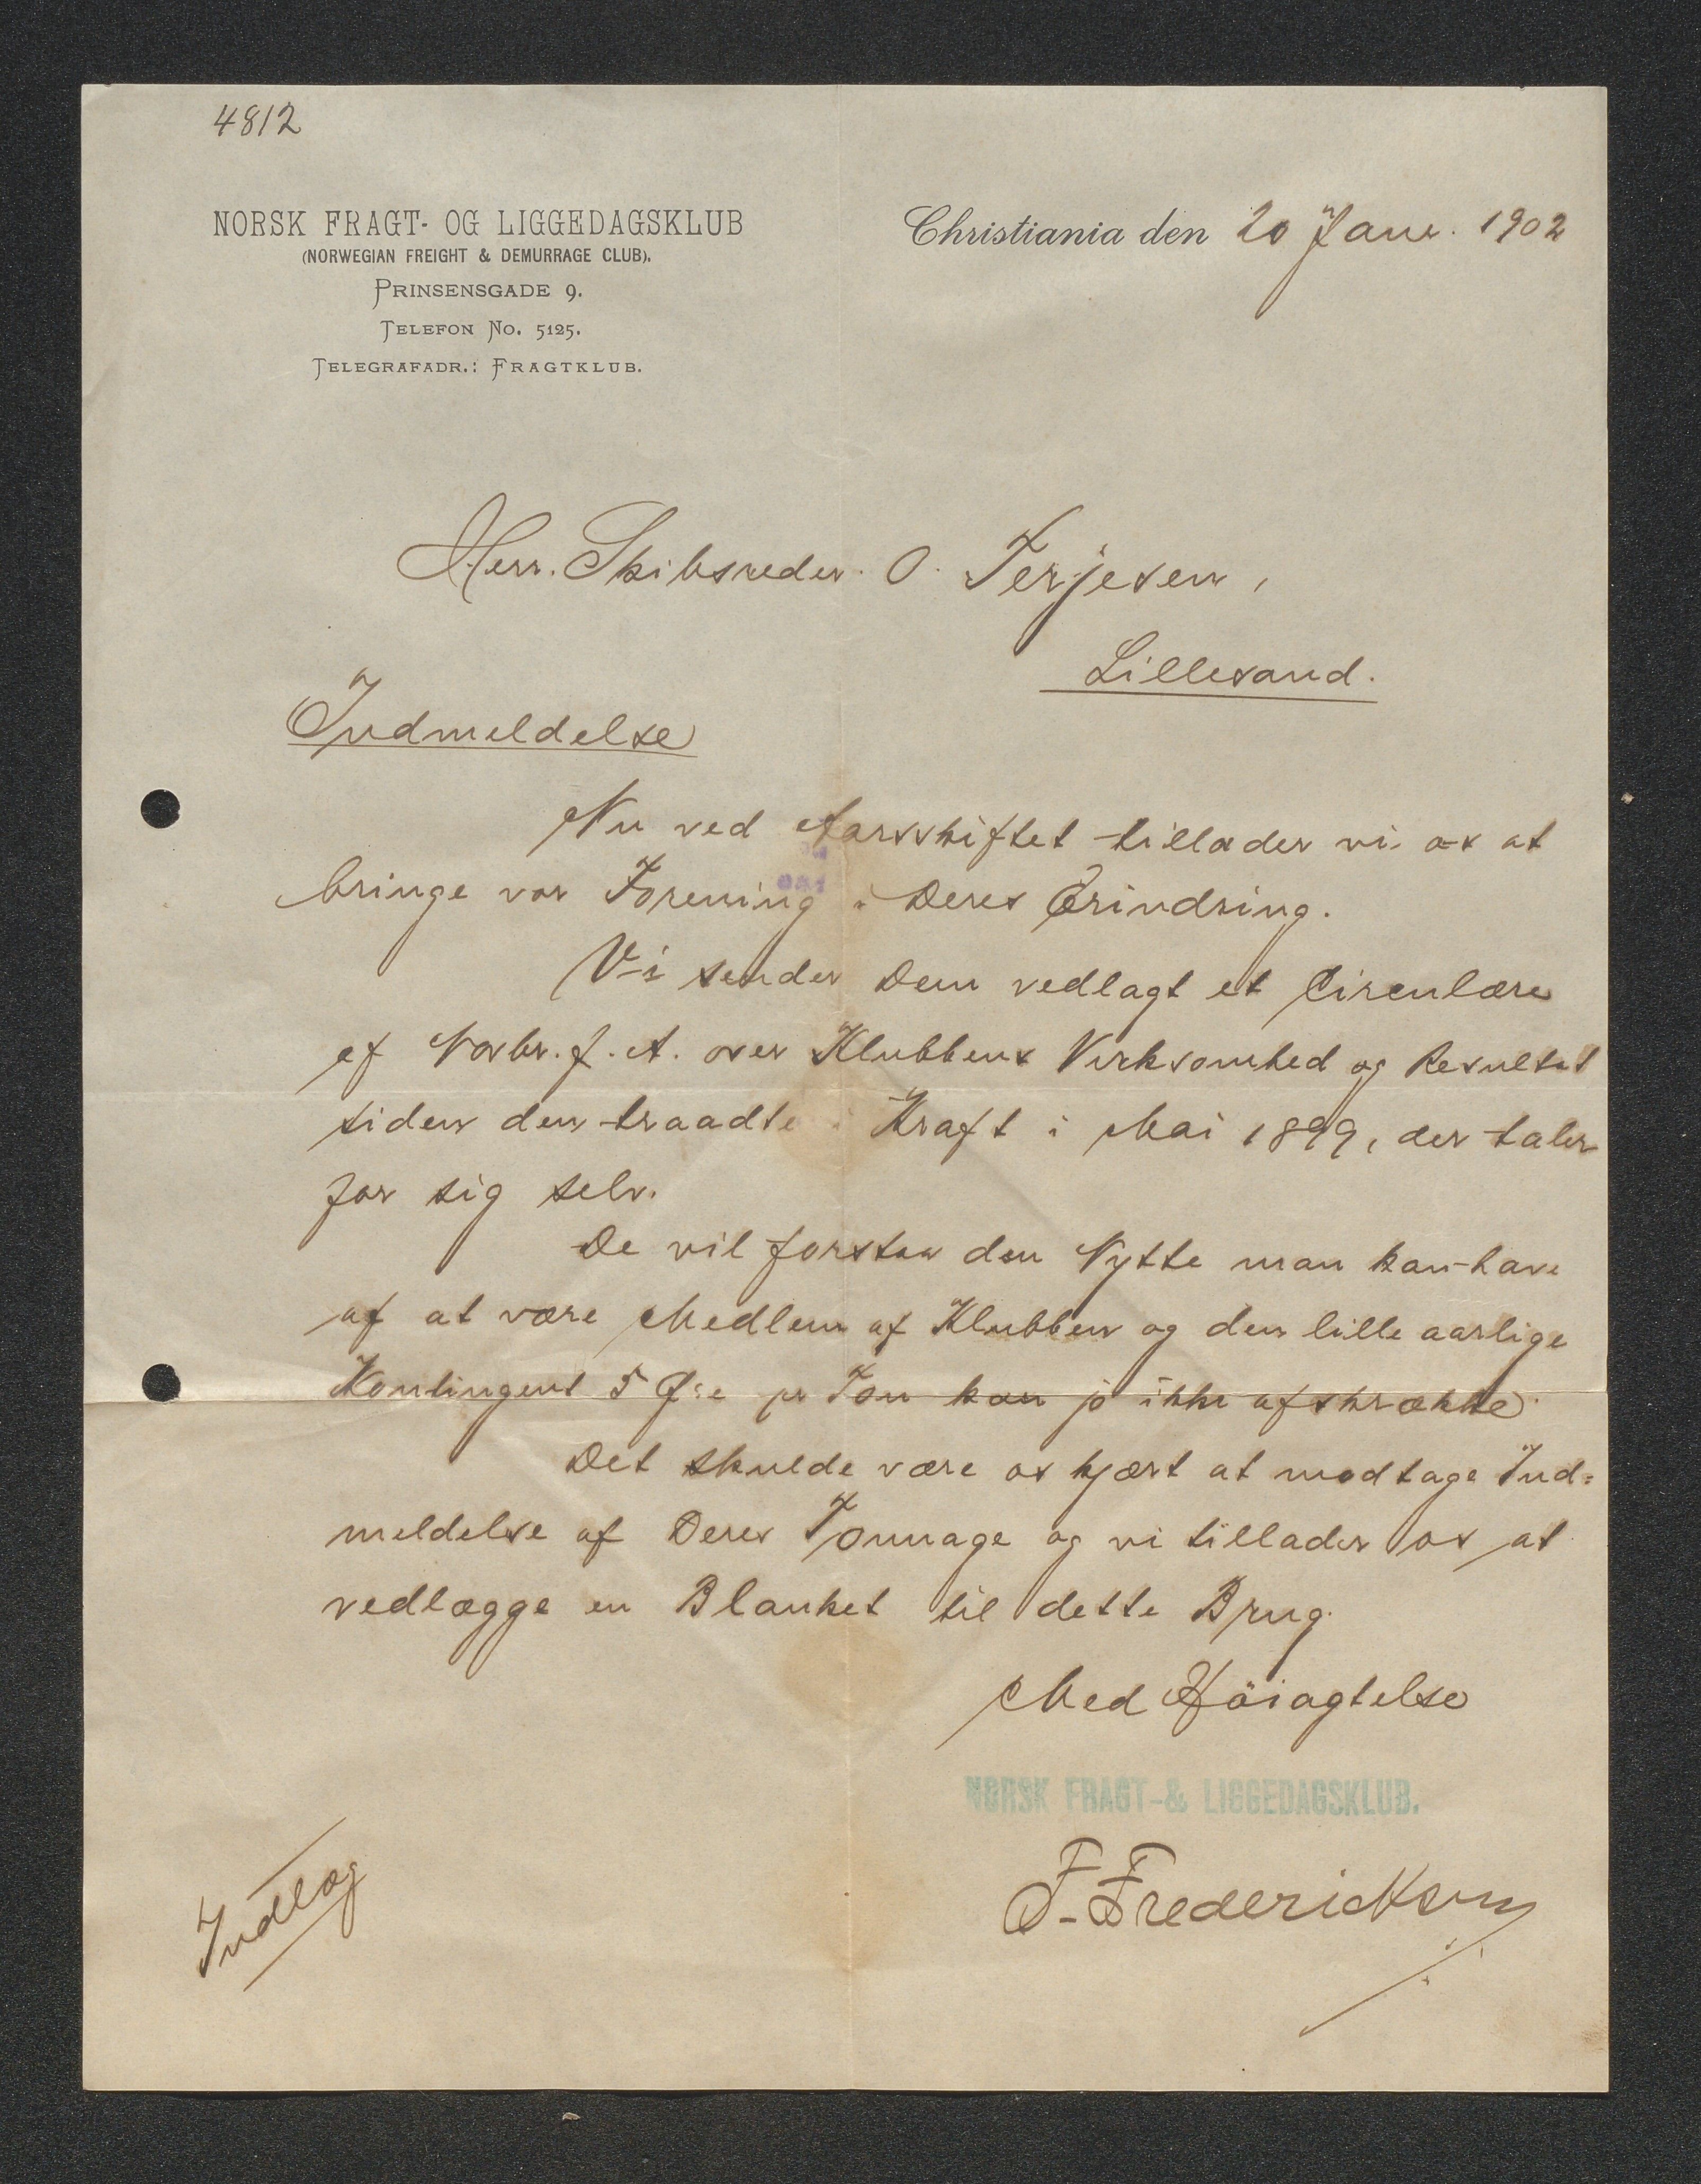 4812
NORSK FRAGT- OG LIGGEDAGSKLUB
(NORWEGIAN FREIGHT & DEMURRAGE CLUB).
PRINSENSGADE 9.
TELEFON NO. 5125.
TELEGRAFADR.: FRAGTKLUB.
Christiania den 20 Janr. 1902
Herr. Skibsreder O. Terjesen,
Lillesand.
Indmeldelse
Nu ved Aarsskiftet tillader vi os at
bringe vor Forening i Deres Erindring.
Vi sender Dem vedlagt et Circulære
af Novbr. f. A. over Klubbens Virksomhed og Resultat
siden den traadte i Kraft i Mai 1899, der taler
for sig selv.
De vil forstaa den Nytte man kan have
af at være Medlem af Klubben og den lille aarlige
Kontingent 5 Øre pr Ton kan jo ikke afskrække.
Det skulde være os kjært at modtage Ind=
meldelse af Deres Tonnage og vi tillader os at
vedlægge en Blanket til dette Brug.
Med Höiagtelse
NORSK FRAGT-& LIGGEDAGSKLUB.
F. Fredericksen
Indlæg